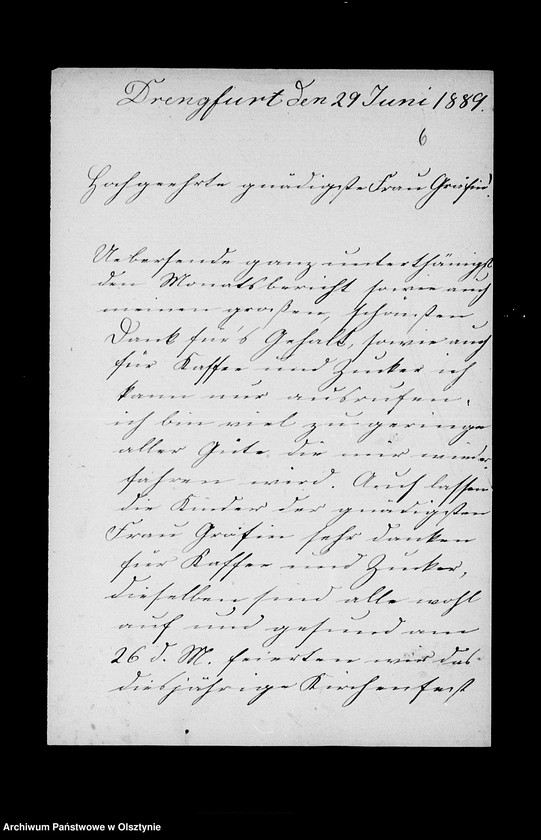 Drengfurt den 29 Juni 1889.
6
Hochgeehrte gnädigste Frau Gräfin.
Uebersende ganz unterthänigst
den Monatsbericht sowie auch
meinen großen, schönsten
Dank für's Gehalt, sowie auch
für Kaffee und Zucker ich
kann nur ausrufen,
ich bin viel zu geringe
aller Güte die mir wieder
fahren wird. Auch lassen
die Kinder der gnädigsten
Frau Gräfin sehr danken
für Kaffee und Zucker,
dieselben sind alle wohl
auf und gesund am
26 d. M. feierten wir das
diesjährige Kirchenfest
Archiwum Państwowe w Olsztynie